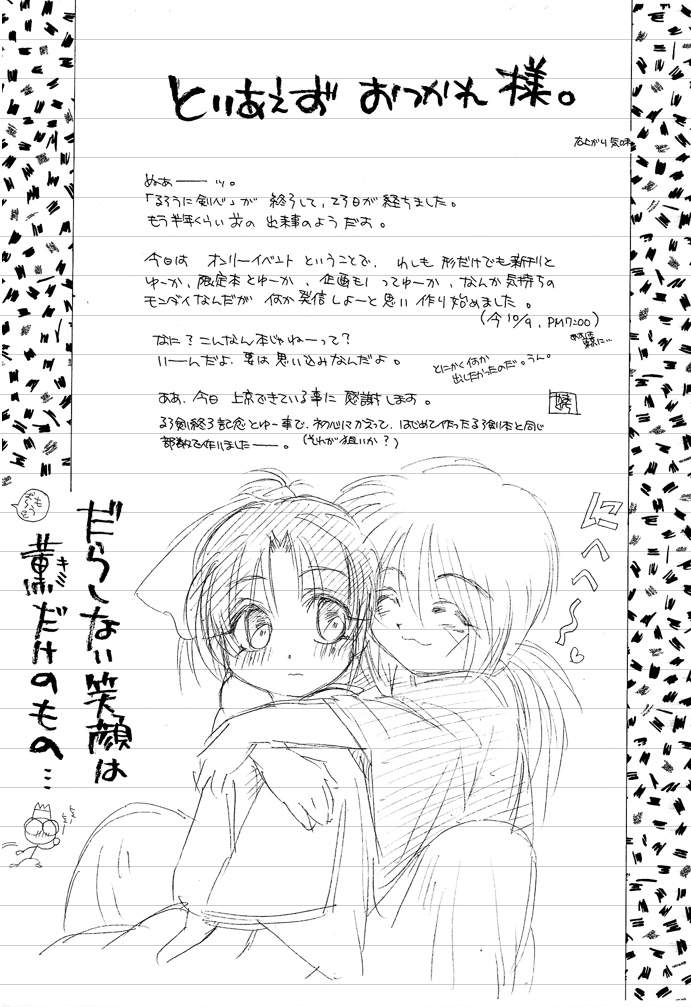 とりあえず おつかれ 様。
右上がり気味
ぬぁーーッ。
「るろうに剣心」が 終了して、23日が 経ちました。
もう半年くらい 前の 出来事のようだお。
今日は オンリーイベント ということで、わしも 形だけでも新刊と
ゆーか、限定本とゆーか、企画もんってゆーか、なんか気持ちの
モンダイなんだが 何か発信しよーと思い 作り始めました。
(今 10/9、PM7:00)
なに?こんなん本じゃねーって?
いーんだよ、要は思い込みなんだよ。
とにかく何か
出したかったのだ。うん。
ああ、今日 上京できている事に 感謝します。
るろ剣終了記念とゆー事で、初心にかえって、はじめて作ったるろ剣本と同じ
部数で作りましたーー。(それが狙いか?)
だらしない笑顔は
薫だけのもの…
キミ
にへへ〜♡